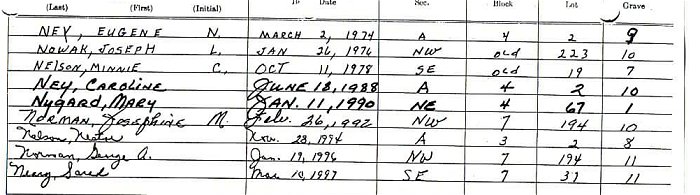 (Last) (First) (Initial) Date Sec. Block Lot Grave
NEY, EUGENE N. MARCH 2, 1974 A 4 2 9
NOWAK, JOSEPH L. JAN 26, 1976 NW OLD 223 10
NELSON, MINNIE C. OCT 11, 1978 SE OLD 19 7
NEY, CAROLINE JUNE 18, 1988 A 4 2 10
NYGARD, MARY JAN. 11, 1990 NE 4 67 1
NORMAN, JOSEPHINE M. Feb. 26, 1992 NW 7 194 10
Nelson, Nov. 23, 1994 A 3 2 8
Norman, George A. Jan. 19, 1996 NW 7 194 11
Mar 10, 1997 SE 7 37 11